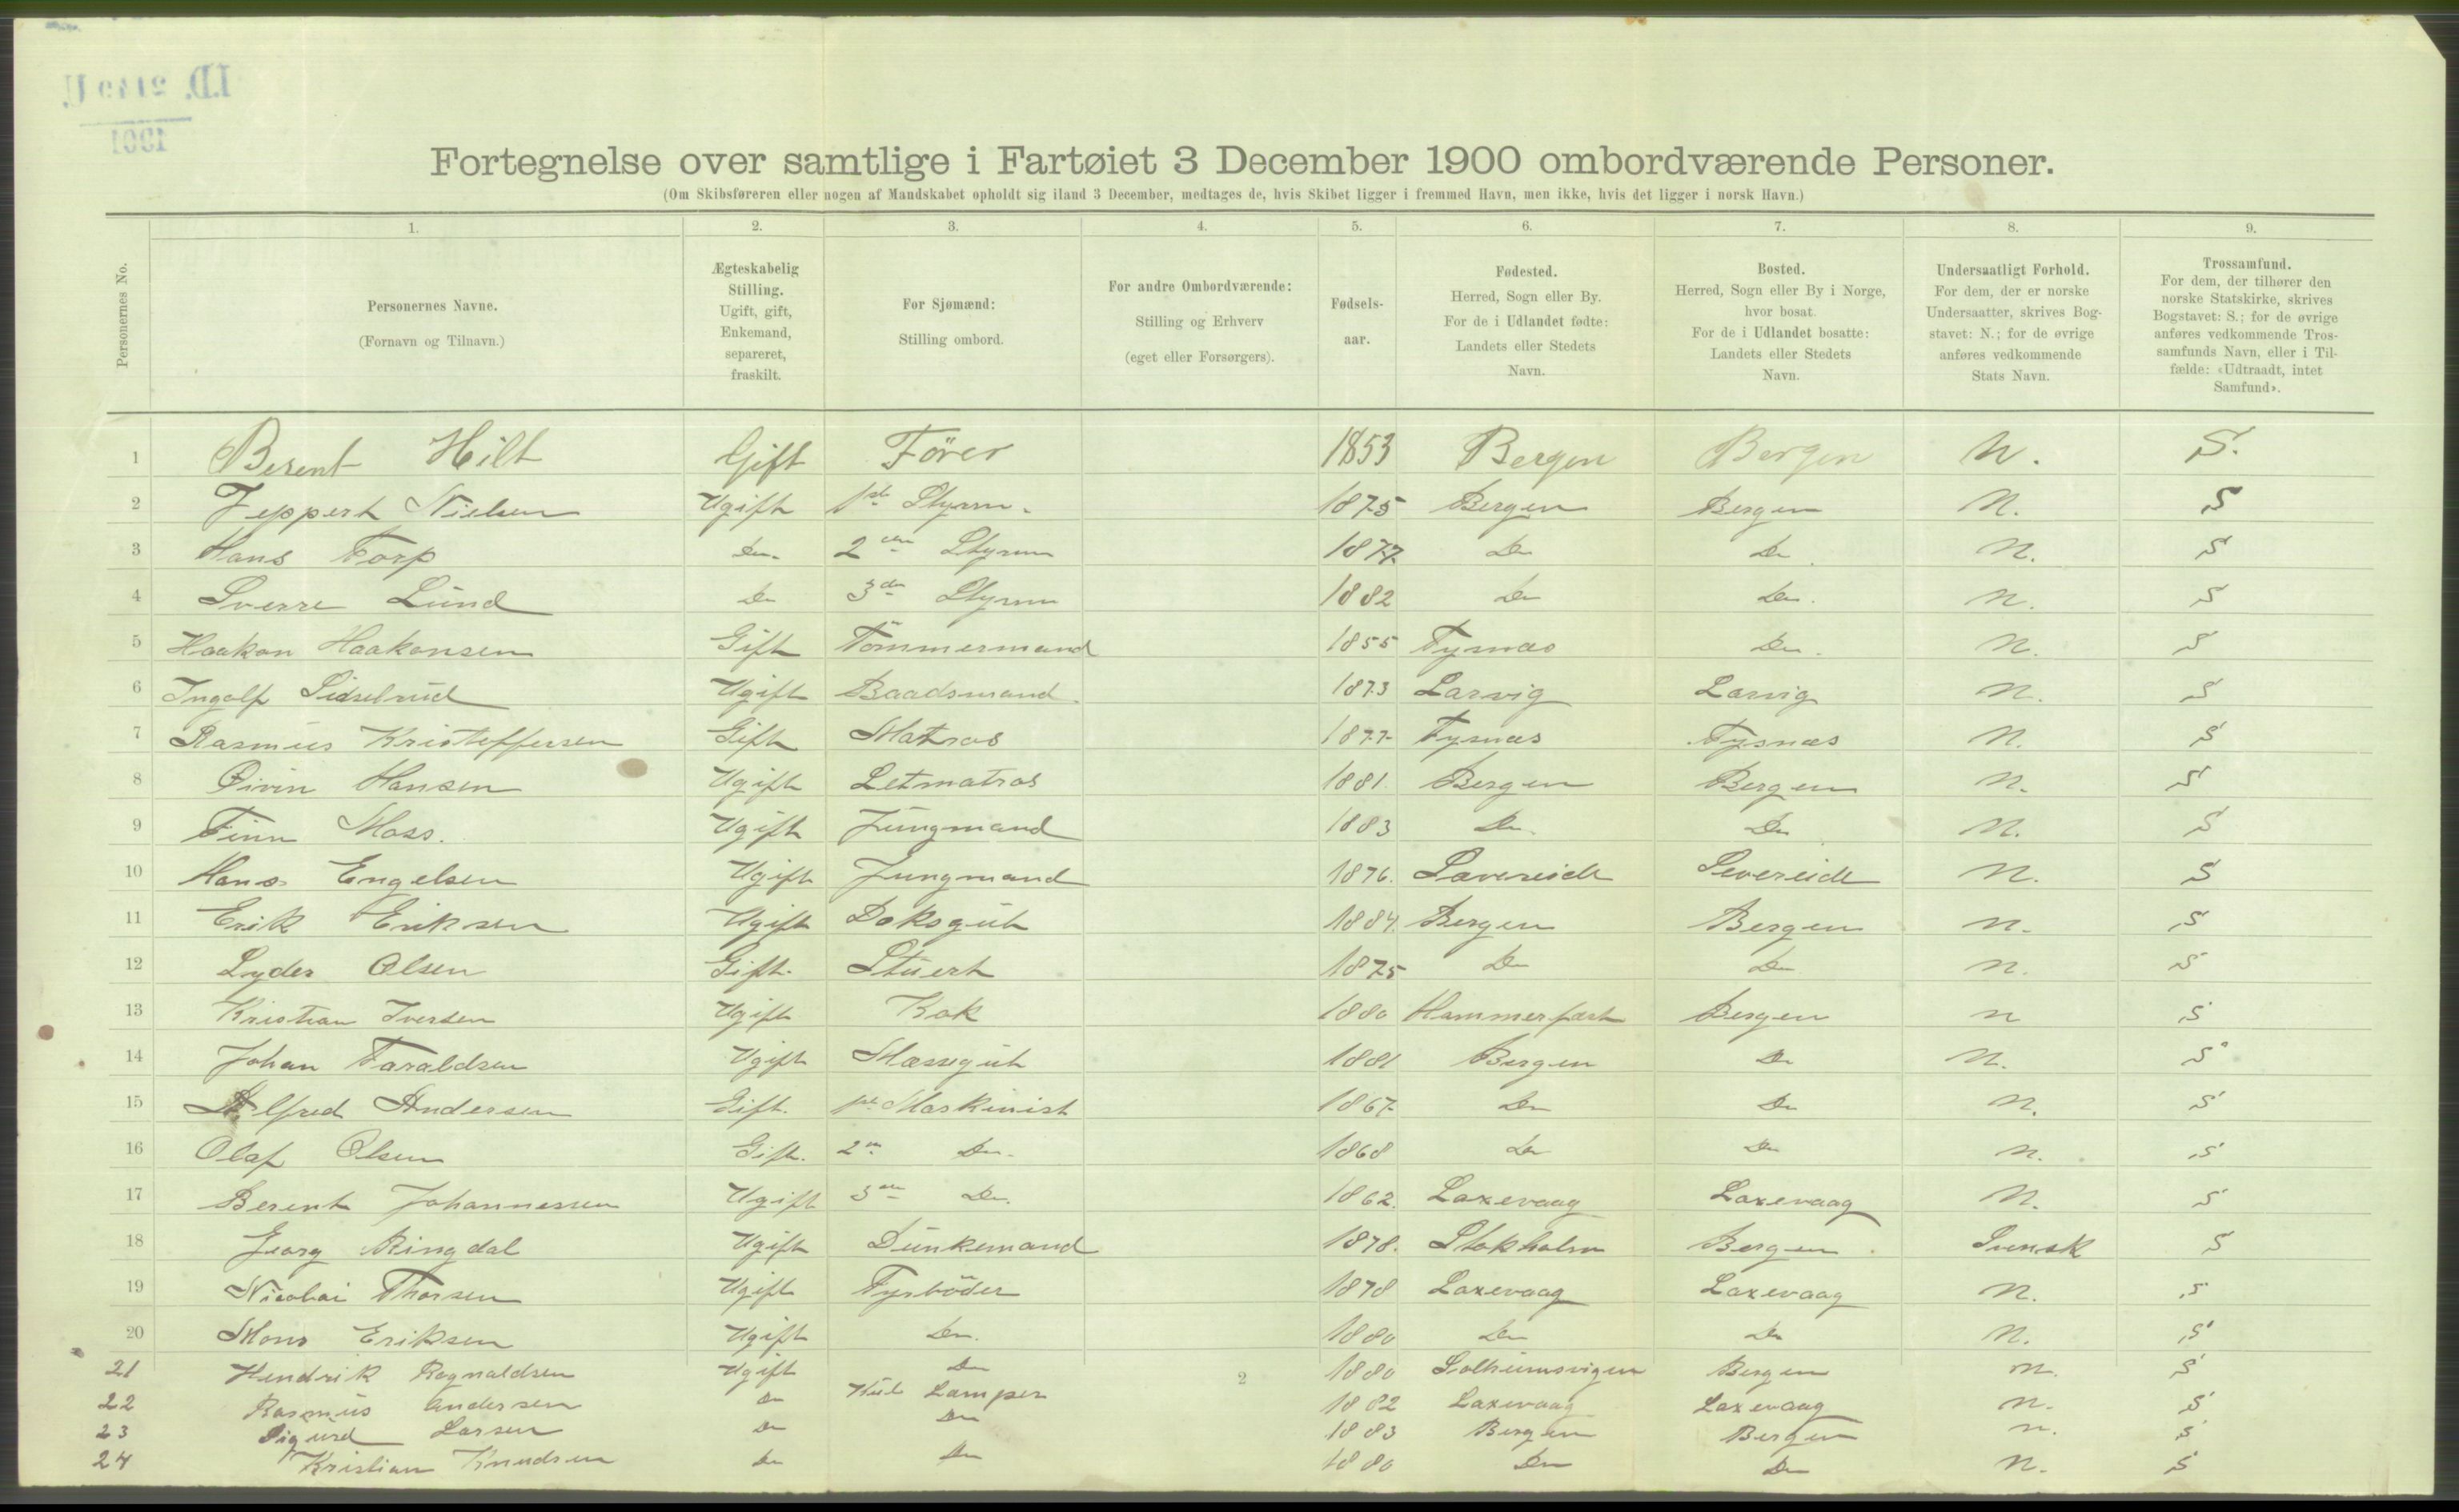 I.D. 2149 U
1901
Fortegnelse over samtlige i Fartøiet 3 December 1900 ombordværende Personer.
(Om Skibsføreren eller nogen af Mandskabet opholdt sig iland 3 December, medtages de, hvis Skibet ligger i fremmed Havn, men ikke, hvis det ligger i norsk Havn.)
Personernes No.
1.
Personernes Navne.
(Fornavn og Tilnavn.)
2.
Ægteskabelig
Stilling.
Ugift, gift,
Enkemand,
separeret,
fraskilt.
3.
For Sjømænd:
Stilling ombord.
4.
For andre Ombordværende:
Stilling og Erhverv
(eget eller Forsørgers).
5.
Fødsels-
aar.
6.
Fødested.
Herred, Sogn eller By.
For de i Udlandet fødte:
Landets eller Stedets
Navn.
7.
Bosted.
Herred, Sogn eller By i Norge,
hvor bosat.
For de i Udlandet bosatte:
Landets eller Stedets
Navn.
8.
Undersaatligt Forhold.
For dem, der er norske
Undersaatter, skrives Bog-
stavet: N.; for de øvrige
anføres vedkommende
Stats Navn.
9.
Trossamfund.
For dem, der tilhører den
norske Statskirke, skrives
Bogstavet: S.; for de øvrige
anføres vedkommende Tros-
samfunds Navn, eller i Til-
fælde: «Udtraadt, intet
Samfund».
1 Berent Hilt Gift Förer 1853 Bergen Bergen N. S.
2 Jeppert Nielsen Ugift 1ste Styrm. 1875 Bergen Bergen N. S
3 Hans Torp Do. 2den Styrm 1877 Do Do N. S
4 Sverre Lund Do 3die Styrm 1882 Do Do. N. S
5 Haakon Haakonsen Gift Tömmermand 1855 Tysnæs Do. N. S
6 Ingolf Sidselrud Ugift Baadsmand 1873 Larvig Larvig N. S
7 Rasmus Kristoffersen Gift Matros 1877 Tysnæs Tysnæs N. S
8 Öivin Hansen Ugift Letmatros 1881. Bergen Bergen N. S
9 Finn Moss. Ugift Jungmand 1883 Do. Do N. S
10 Hans Engelsen Ugift Jungmand 1876. Sævereide Severeide N. S
11 Erik Eriksen Ugift Doksgut 1884. Bergen Bergen N. S
12 Lyder Olsen Gift. Stuert 1875 Do Do N. S
13 Kristian Iversen Ugift Kok 1880 Hammerfæst Bergen N S
14 Johan Taraldsen Ugift Mæssegut 1881 Bergen Do N. S
15 Alfred Andersen Gift. 1ste Maskinist 1867 Do Do N. S
16 Olaf Olsen Gift. 2den Do. 1868 Do Do N. S
17 Berent Johannessen Ugift 3die Do. 1862. Laxevaag Laxevaag N. S
18 Georg Ringdal Ugift Dunkemand 1878. Stokholm Bergen Svensk S
19 Nicolai Thorsen Ugift Fyrböder 1878 Laxevaag Laxevaag N. S
20 Mons Eriksen Ugift Do. 1880 Do Do N. S
21 Hendrik Ragnaldsen Ugift Do 1880 Solheimsvigen Bergen N. S
2
22 Rasmus Andersen Do Kul Lamper 1882 Laxevaag Laxevaag N. S
23 Sigurd Larsen Do Do 1883 Bergen Bergen N. S
24 Kristian Knudsen Do Do 1880 Do Do N. S